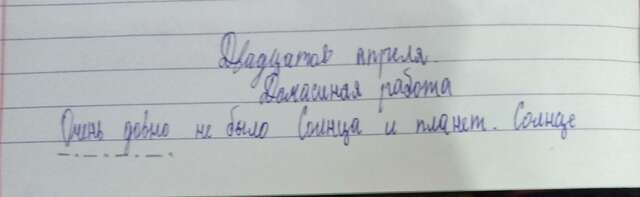 Двадцатов апреля.
Домасиная работа
Очень довно не было Солнца и планет. Солнце